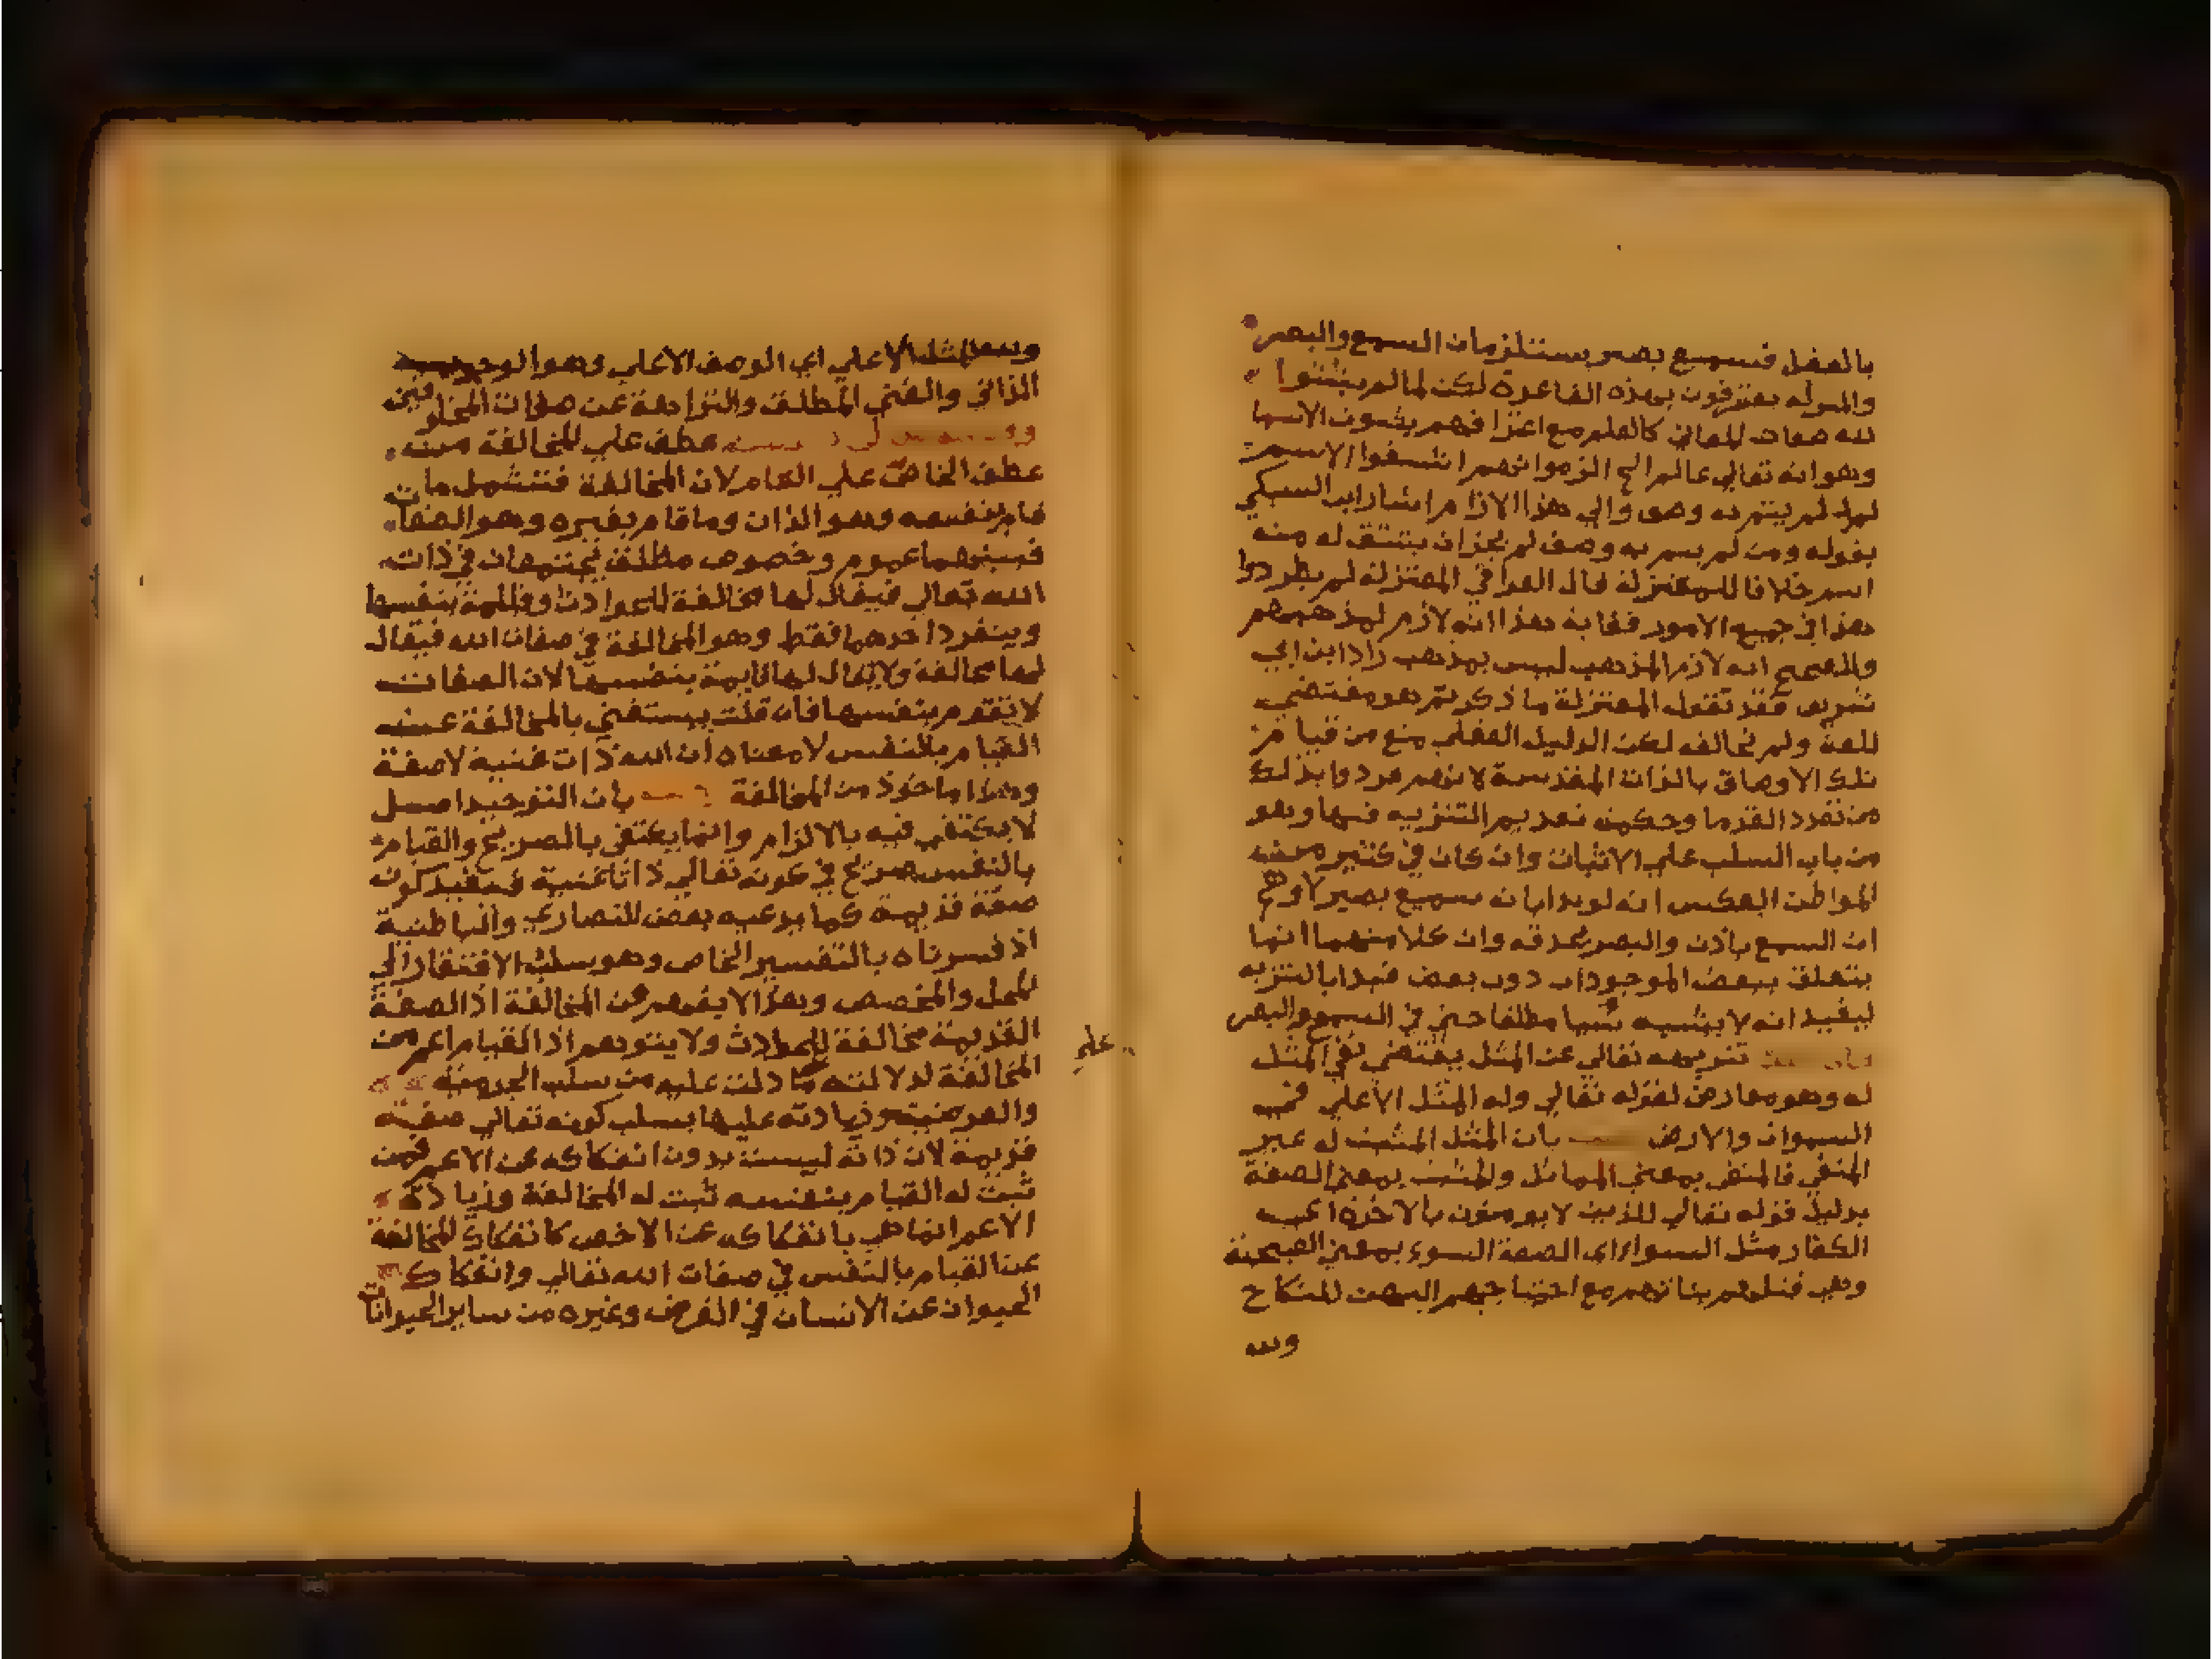 بالفعل فسميع بصير يستلزمان السمع والبصر
والمعتزلة يعترفون بهذه القاعدة لكن لما لم يثبتوا
لله صفات المعاني كالعلم مع اعترافهم بثبوت الاسما
وهو انه تعالى عالم الخ الزموا انهم اشتقوا الاسم
لمن لم يقم به وصف والى هذا الالزام اشار ابن السبكي
بقوله ومن لم يسم به وصف لم يجز ان يشتق له منه
اسم خلافا للمعتزلة قال العراقي المعتزلة لم يطردوا
هذا في جميع الامور فغاية هذا انه لازم لمذهبهم
والصحيح ان لازم المذهب ليس بمذهب زاد ابن ابي
شريف فقد تقول المعتزلة ما ذكرتم هو مقتضى
اللغة ولم نخالفه لكن الدليل العقلي منع من قيام
تلك الاوصاف بالذات المقدسة لانهم فردوا بذلك
من تعدد القدما وحكمة تقديم التنزيه فيها وهو
من باب السلب على الاثبات وان كان في كثير من
المواطن العكس انه لو بدا بانه سميع بصير لاوهم
ان السمع باذن والبصر بحدقة وان كلا منهما انما
يتعلق ببعض الموجودات دون بعض فبدا بالتنزيه
ليفيد انه لا يشبه شيا مطلقا حتى في السمع والبصر
تنزيهه تعالى عن المثل يقتضي نفي المثل
له وهو معارض لقوله تعالى وله المثل الاعلى في
السموات والارض بان المثل المثبت له غير
المنفي فالمنفي بمعنى المماثل والمثبت بمعنى الصفة
بدليل قوله تعالى للذين لا يومنون بالاخرة اي
الكفار مثل السواء اي الصفة السوء بمعنى القبيحة
وهي قتلهم بناتهم مع احتياجهم اليهن للنكاح
ولله
ولله المثل الاعلى اي الوصف الاعلى وهو الوجود
الذاتي والغنى المطلق والنزاهة عن صفات المخلوقين
عطف على المخالفة من
عطف الخاص على العام لان المخالفة فتشمل ما
قام بنفسه وهو الذات وما قام بغيره وهو الصفات
فبينهما عموم وخصوص مطلق يجتمعان في ذات
الله تعالى فيقال لها مخالفة للحوادث وقائمة بنفسها
وينفرد احدهما فقط وهو المخالفة في صفات الله فيقال
لها مخالفة ولا يقال لها قايمة بنفسها لان الصفات
لا تقوم بنفسها فان قلت يستغنى بالمخالفة عن
القيام بالنفس لا معناه ان الله ذات غنية لا صفة
وهذا ماخوذ من المخالفة بان التوحيد اصل
لا يكتفى فيه بالالزام وانما يكتفى بالصريح والقيام
بالنفس صريح في كونه تعالى ذاتا غنية فيفيد كونه
صفة قديمة كما يدعيه بعض النصارى والباطنية
اذ فسرناه بالتفسير الخاص وهو سلب الافتقار الى
المحل والمخصص وهذا لا يفهم من المخالفة اذ الصفة
القديمة مخالفة للحوادث ولا يتوهم اذ القيام اعم من
علي
المخالفة لدلالته ما دلت عليه من سلب الجرمية
والعرضية وزيادته عليها بسلب كونه تعالى صفة
قديمة لان ذاته ليست بدون انفكاكه عن الاعم فمن
ثبت له القيام بنفسه ثبت له المخالفة وزيادة
الاعم انما هي بانفكاكه عن الاخص كانفكاك المخالفة
عن القيام بالنفس في صفات الله تعالى وانفكاك
الحيوان عن الانسان في الفرض وغيره من ساير الحيوانات